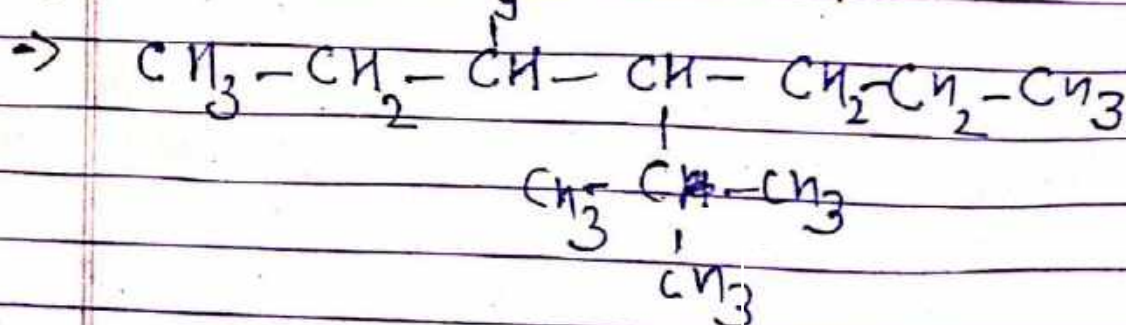 → CH3 - CH2 - CH - CH - CH2 - CH2 - CH3
CH3 - C - CH3
CH3